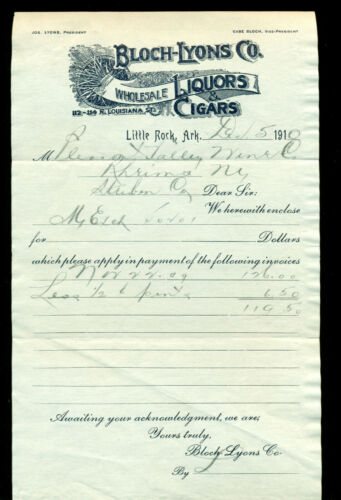 JOS. LYONS, PRESIDENT
GABE BLOCH, VICE-PRESIDENT
BLOCH-LYONS CO.
WHOLESALE LIQUORS
& CIGARS
112-114 N. LOUISIANA ST.
Little Rock, Ark. 5 1910
M Pleasant Valley Wine Co
Rheims Ny
Steuben Co Dear Sir:
We herewith enclose
My Exch
for Dollars
which please apply in payment of the following invoices
Nov 22-09 126.00
Less 1/2 6.50
119.50
Awaiting your acknowledgment, we are;
Yours truly,
Bloch-Lyons Co.
By